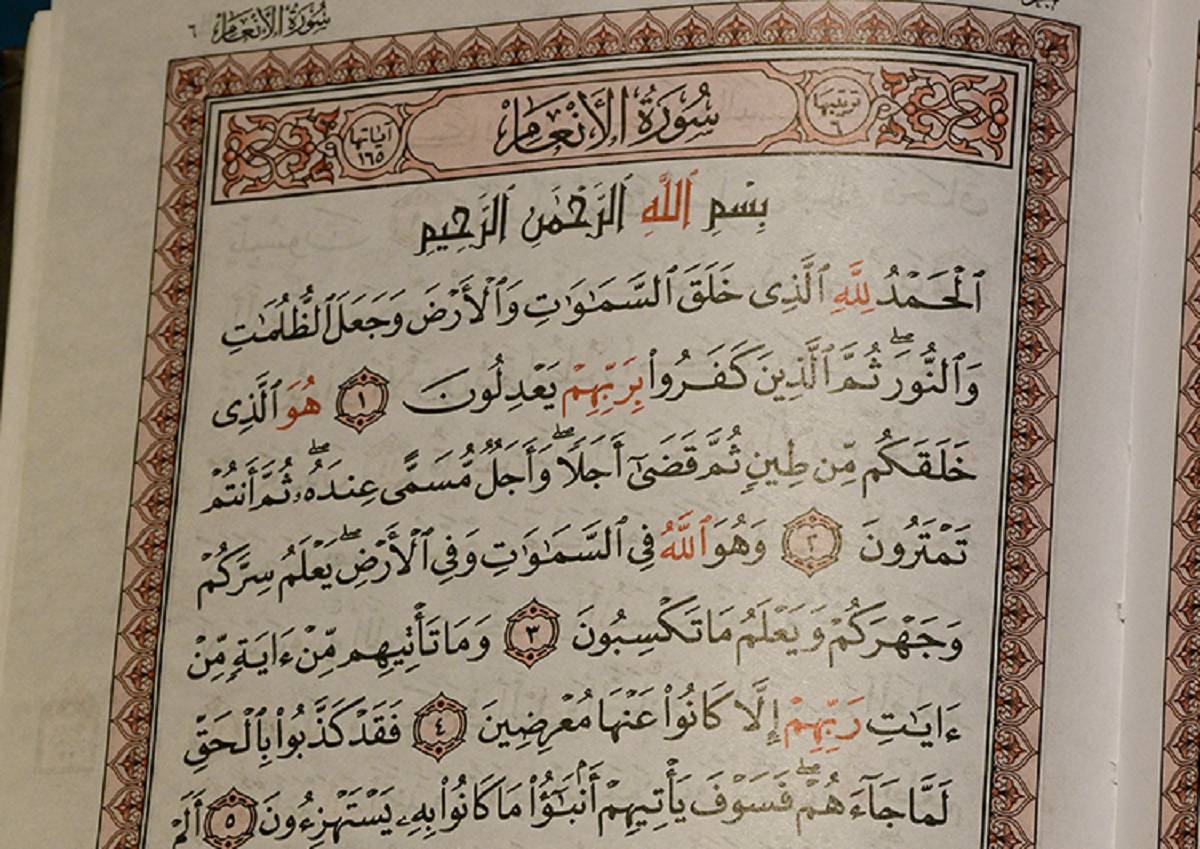 سُورَةُ الأَنْعَامِ ٦
سُورَةُ الأَنْعَامِ
ترتيبها ٦
آياتها ١٦٥
بِسْمِ ٱللَّهِ ٱلرَّحْمَٰنِ ٱلرَّحِيمِ
ٱلْحَمْدُ لِلَّهِ ٱلَّذِى خَلَقَ ٱلسَّمَٰوَٰتِ وَٱلْأَرْضَ وَجَعَلَ ٱلظُّلُمَٰتِ
وَٱلنُّورَ ۖ ثُمَّ ٱلَّذِينَ كَفَرُوا۟ بِرَبِّهِمْ يَعْدِلُونَ ١ هُوَ ٱلَّذِى
خَلَقَكُم مِّن طِينٍ ثُمَّ قَضَىٰٓ أَجَلًا ۖ وَأَجَلٌ مُّسَمًّى عِندَهُۥ ۖ ثُمَّ أَنتُمْ
تَمْتَرُونَ ٢ وَهُوَ ٱللَّهُ فِى ٱلسَّمَٰوَٰتِ وَفِى ٱلْأَرْضِ ۖ يَعْلَمُ سِرَّكُمْ
وَجَهْرَكُمْ وَيَعْلَمُ مَا تَكْسِبُونَ ٣ وَمَا تَأْتِيهِم مِّنْ ءَايَةٍ مِّنْ
ءَايَٰتِ رَبِّهِمْ إِلَّا كَانُوا۟ عَنْهَا مُعْرِضِينَ ٤ فَقَدْ كَذَّبُوا۟ بِٱلْحَقِّ
لَمَّا جَآءَهُمْ ۖ فَسَوْفَ يَأْتِيهِمْ أَنۢبَٰٓؤُا۟ مَا كَانُوا۟ بِهِۦ يَسْتَهْزِءُونَ ٥ أَلَمْ